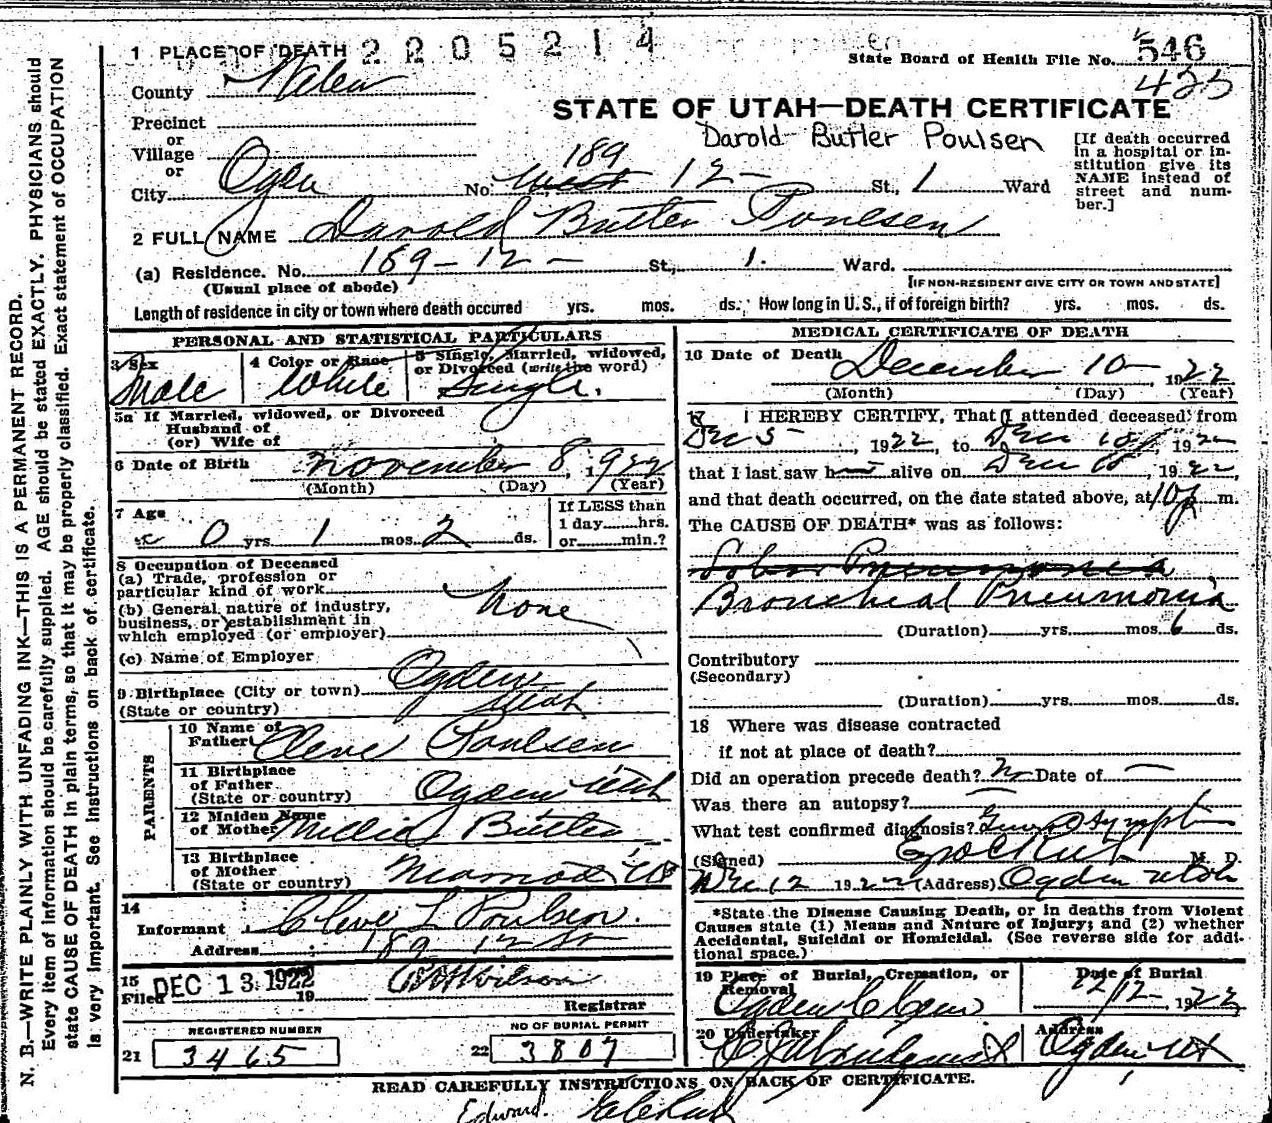 1 PLACE OF DEATH 2205214
State Board of Health File No. 546
County Weber
STATE OF UTAH—DEATH CERTIFICATE
Precinct
or
Village
or
City Ogden No. 189 West 12 - St., 1 Ward
Darold Butler Poulsen
[If death occurred
in a hospital or in-
stitution give its
NAME instead of
street and num-
ber.]
2 FULL NAME Darold Butler Poulsen
(a) Residence. No. 189 - 12 - St., 1. Ward.
(Usual place of abode)
[IF NON-RESIDENT GIVE CITY OR TOWN AND STATE]
Length of residence in city or town where death occured yrs. mos. ds.; How long in U. S., if of foreign birth? yrs. mos. ds.
PERSONAL AND STATISTICAL PARTICULARS
3 Sex
Male
4 Color or Race
White
5 Single, Married, widowed,
or Divorced (write the word)
Single.
5a If Married, widowed, or Divorced
Husband of
(or) Wife of
6 Date of Birth November 8, 1922
(Month) (Day) (Year)
7 Age
0 yrs. 1 mos. 2 ds.
If LESS than
1 day......hrs.
or......min.?
8 Occupation of Deceased
(a) Trade, profession or
particular kind of work
(b) General nature of industry,
business, or establishment in
which employed (or employer)
None
(c) Name of Employer
9 Birthplace (City or town) Ogden
(State or country) Utah
PARENTS
10 Name of
Father Cleve Poulsen
11 Birthplace
of Father
(State or country) Ogden Utah
12 Maiden Name
of Mother Millie Butler
13 Birthplace
of Mother
(State or country)
14
Informant Cleve L Poulsen.
Address 189 - 12 St
15
Filed DEC 13 1922 19
Registrar
REGISTERED NUMBER
21 3465
NO OF BURIAL PERMIT
22 3807
MEDICAL CERTIFICATE OF DEATH
16 Date of Death December 10 - 1922
(Month) (Day) (Year)
17 I HEREBY CERTIFY, That I attended deceased from
Dec 5, 1922, to Dec 10, 1922
that I last saw h alive on Dec 10, 1922,
and that death occurred, on the date stated above, at 10 p m.
The CAUSE OF DEATH* was as follows:
Lobar Pneumonia
Bronchial Pneumonia
(Duration) yrs. mos. 6 ds.
Contributory
(Secondary)
(Duration) yrs. mos. ds.
18 Where was disease contracted
if not at place of death?
Did an operation precede death? No Date of —
Was there an autopsy?
What test confirmed diagnosis?
(Signed) M. D.
Dec 12 1922 (Address) Ogden Utah
*State the Disease Causing Death, or in deaths from Violent
Causes state (1) Means and Nature of Injury; and (2) whether
Accidental, Suicidal or Homicidal. (See reverse side for addi-
tional space.)
19 Place of Burial, Cremation, or
Removal
Ogden C Cem
Date of Burial
12/12 1922
20 Undertaker
Address
Ogden Ut
READ CAREFULLY INSTRUCTIONS ON BACK OF CERTIFICATE.
Edward
N. B.—WRITE PLAINLY WITH UNFADING INK—THIS IS A PERMANENT RECORD.
Every item of information should be carefully supplied. AGE should be stated EXACTLY. PHYSICIANS should
state CAUSE OF DEATH in plain terms, so that it may be properly classified. Exact statement of OCCUPATION
is very important. See instructions on back of certificate.